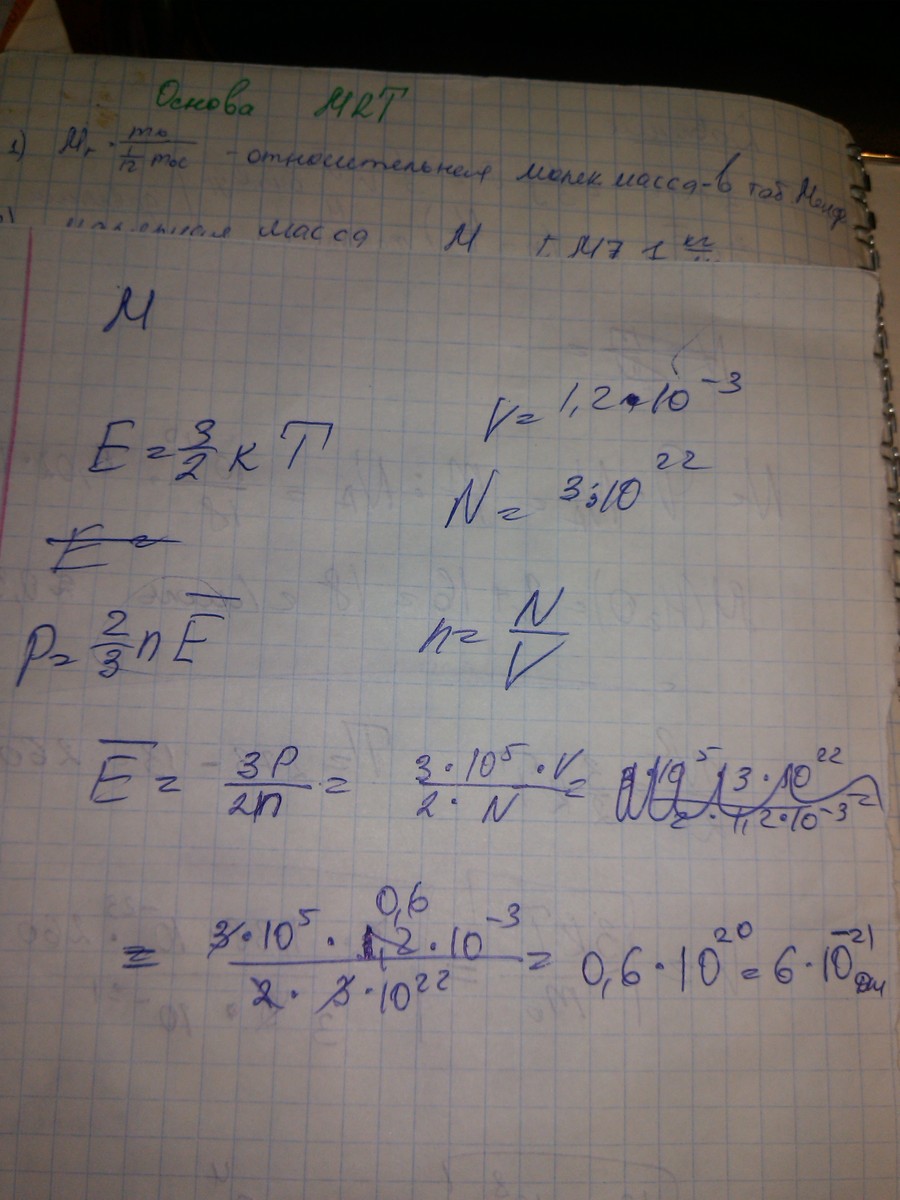 Основа МКТ
1) Mr = m₀ / (1/12 m₀c) - относительная молек масса - в таб. Менд.
масса M [M] = 1 кг
M
E = 3/2 k T
V = 1,2 · 10⁻³
N = 3 · 10²²
E =
p = 2/3 n E̅
n = N/V
E̅ = 3P / 2n = 3 · 10⁵ · V / 2 · N =
= 3 · 10⁵ · 1,2 · 10⁻³ / 2 · 3 · 10²² = 0,6 · 10²⁰ = 6 · 10⁻²¹ Дж
0,6